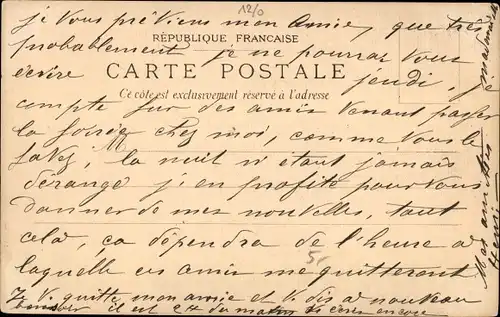 12/0
je Vous préviens mon Amie, que très
probablement je ne pourrai Vous
RÉPUBLIQUE FRANÇAISE
écrire jeudi, je
CARTE POSTALE
Ce côté est exclusivement réservé à l'adresse
compte sur des amis venant passer
la soirée chez moi, comme Vous le
savez, la nuit n'étant jamais
dérangé j'en profite pour Vous
donner de mes nouvelles, tout
celà, ça dépendra de l'heure à
laquelle ces amis me quitteront
Je V. quitte mon amie et V. dis à nouveau
il est 2 du matin
Mes amitiés